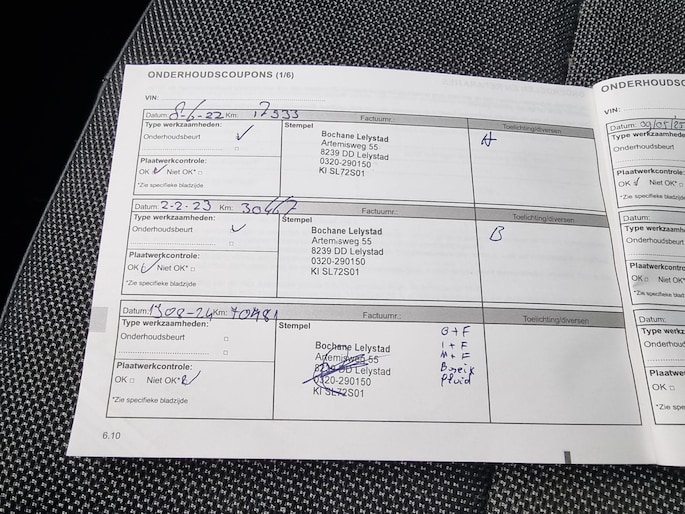 ONDERHOUDSCOUPONS (1/6)
VIN:
Datum: 8-6-22 Km: 17533 Factuurnr.: Toelichting/diversen
Type werkzaamheden:
Onderhoudsbeurt
Plaatwerkcontrole:
OK Niet OK*
*Zie specifieke bladzijde
Stempel
Bochane Lelystad
Artemisweg 55
8239 DD Lelystad
0320-290150
KI SL72S01
A
Datum: 2-2-23 Km: Factuurnr.: Toelichting/diversen
Type werkzaamheden:
Onderhoudsbeurt
Plaatwerkcontrole:
OK Niet OK*
*Zie specifieke bladzijde
Stempel
Bochane Lelystad
Artemisweg 55
8239 DD Lelystad
0320-290150
KI SL72S01
B
Datum: 1308-24 Km: 70481 Factuurnr.: Toelichting/diversen
Type werkzaamheden:
Onderhoudsbeurt
Plaatwerkcontrole:
OK Niet OK*
*Zie specifieke bladzijde
Stempel
Bochane Lelystad
Artemisweg 55
8239 DD Lelystad
0320-290150
KI SL72S01
O + F
I + F
M + F
fluid
6.10
ONDERHOUDSC
VIN:
Datum: 09/05/25
Type werkzaamhede
Onderhoudsbeurt
Plaatwerkcontrole
OK Niet OK*
*Zie specifieke bladz
Datum:
Type werkzaamh
Onderhoudsbeurt
Plaatwerkcontro
OK Niet OK*
*Zie specifieke blad
Datum:
Type werkz
Onderhoud
Plaatwer
OK
*Zie spec